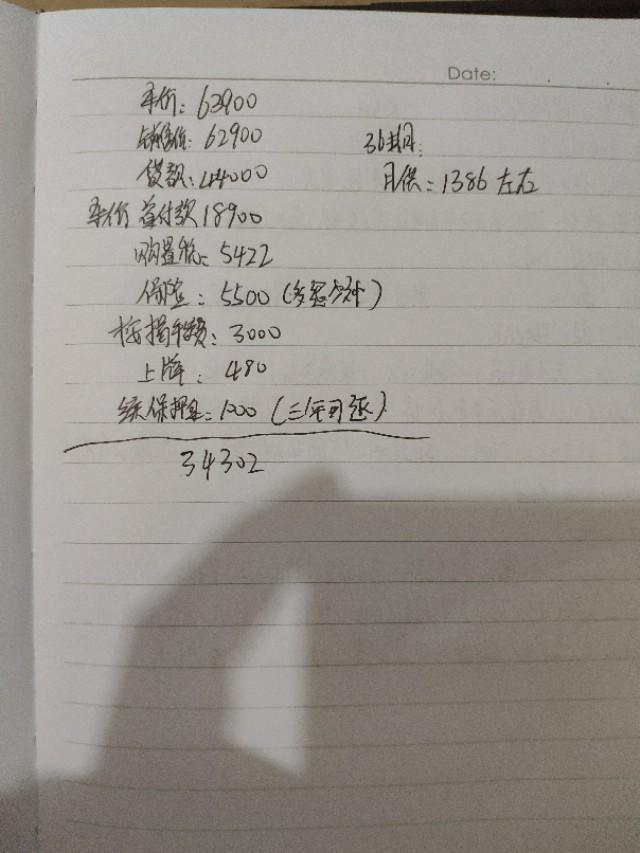 Date:
车价: 63900
销售价: 62900
36期:
贷款: 44000
月供: 1386 左右
车价 首付款 18900
购置税: 5422
保险: 5500 (多退少补)
按揭手续费: 3000
上牌: 480
续保押金: 1000 (三年可退)
34302